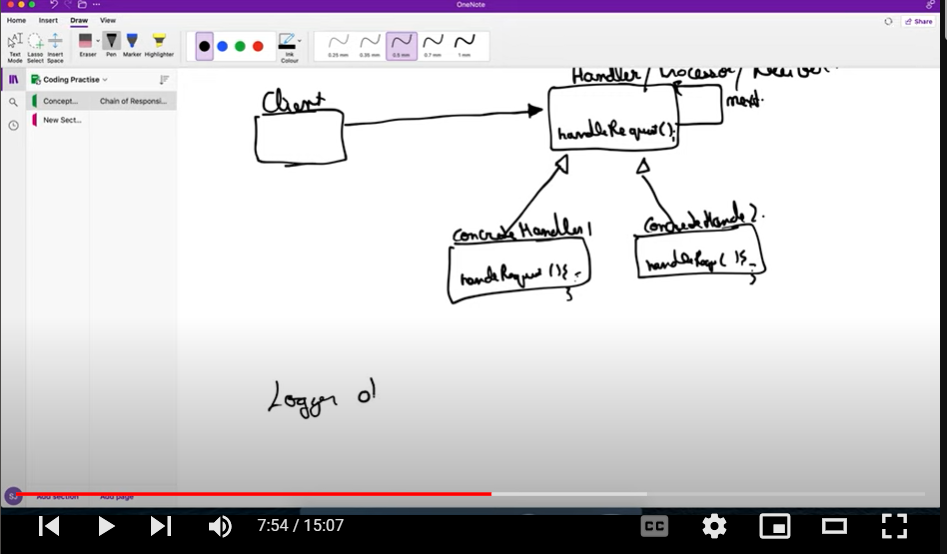 OneNote
Home Insert Draw View
Share
Text Mode Lasso Select Insert Space Eraser Pen Marker Highlighter Ink Colour 0.25 mm 0.35 mm 0.5 mm 0.7 mm 1 mm
Coding Practise
Concept... Chain of Responsi...
New Sect...
Handler / Processor /
Client
next.
handleRequest();
concreteHandler1
handleRequest (){
}
SJ Add section Add page
Logger ob
7:54 / 15:07
CC